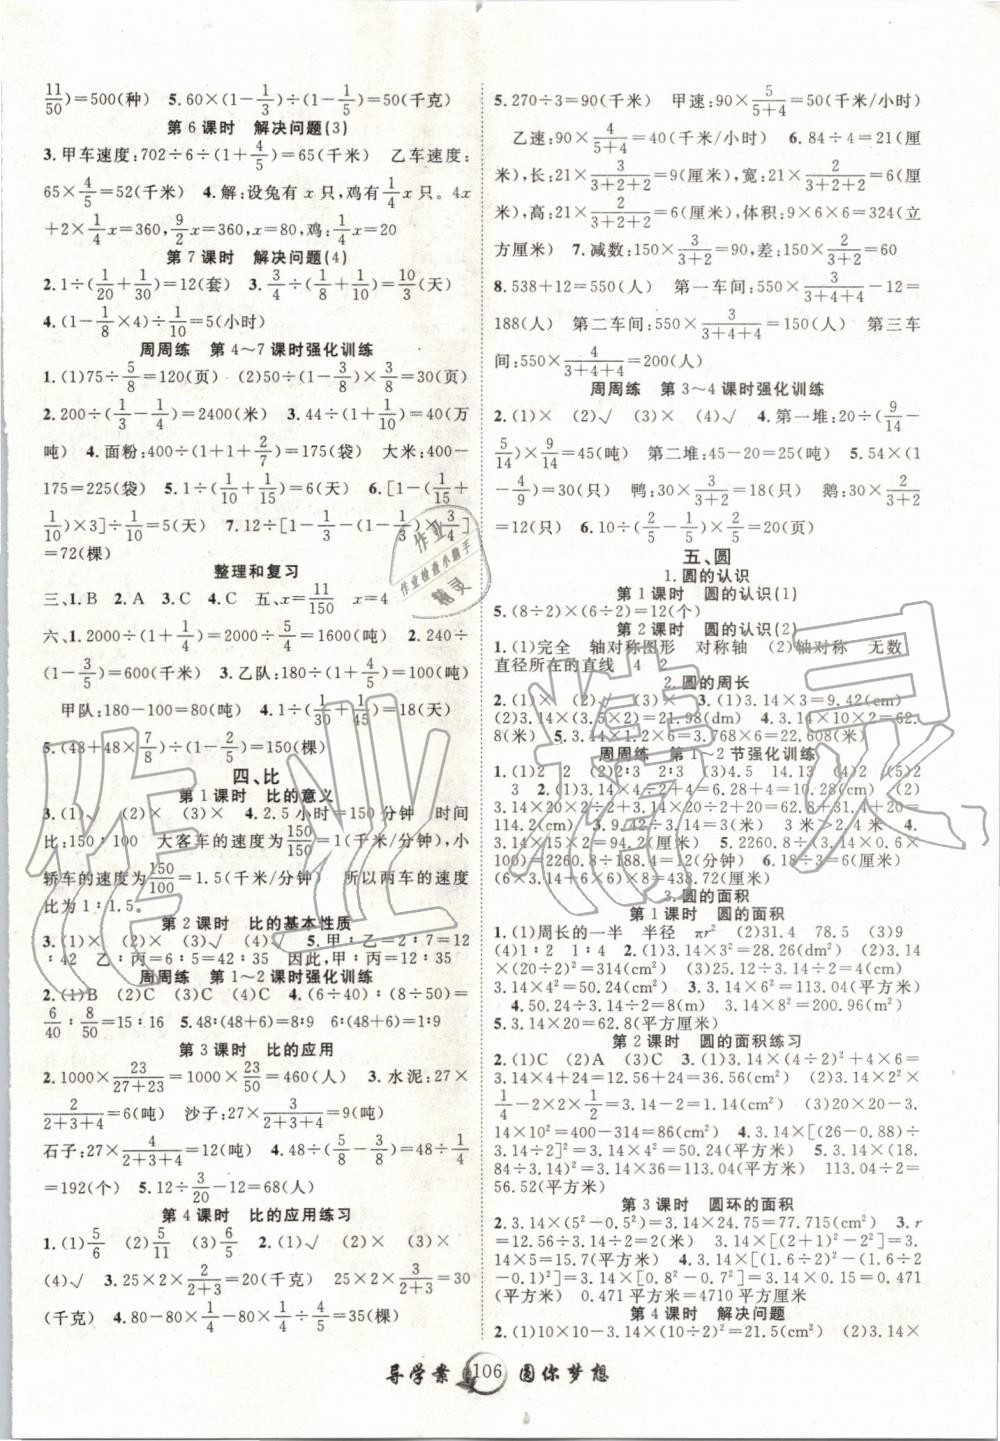 11/50)=500(种)　5.60×(1-1/3)÷(1-1/5)=50(千克)
第6课时　解决问题(3)
3.甲车速度:702÷6÷(1+4/5)=65(千米)　乙车速度:
65×4/5=52(千米)　4.解:设兔有x只,鸡有1/4x只。4x
+2×1/4x=360,9/2x=360,x=80,鸡:1/4x=20
第7课时　解决问题(4)
2.1÷(1/20+1/30)=12(套)　3.3/4÷(1/8+1/10)=10/3(天)
4.(1-1/8×4)÷1/10=5(小时)
周周练　第4~7课时强化训练
1.(1)75÷5/8=120(页)　(2)50÷(1-1/6×4)=150(页)
2.200÷(1/3-1/4)=2400(米)　3.44÷(1+1/10)=40(万
吨)　4.面粉:400÷(1+1+2/7)=175(袋)　大米:400-
175=225(袋)　5.1÷(1/10+1/15)=6(天)　6.[1-(1/6+
1/10)×3]÷1/5=1(天)　7.12÷[1-1/3-(1-1/3)×3/4]
=72(棵)
整理和复习
三、1.B　2.A　3.C　4.C　五、x=11/150　x=4
六、1.2000÷(1+1/4)=2000÷5/4=1600(吨)　2.240÷
(1-3/5)=600(千米)　3.乙队:180÷(1+4/5)=100(吨)
甲队:180-100=80(吨)　4.1÷(1/30+1/45)=18(天)
5.(48+48×7/8)÷(1-2/5)=150(棵)
四、比
第1课时　比的意义
3.(1)√　(2)×　(3)×　4.2.5小时=150分钟　时间
比:150∶100　大客车的速度为150/150=1(千米/分钟)　小
轿车的速度为150/100=1.5(千米/分钟)　所以两车的速度
比为1∶1.5。
第2课时　比的基本性质
3.(1)×　(2)×　(3)√　(4)√　5.甲∶乙=2∶7=12
∶42　乙∶丙=6∶5=42∶35　因此,甲∶丙=12∶35
周周练　第1~2课时强化训练
2.(1)B　(2)C　(3)C　(4)B　3.(1)√　4.(6÷40)∶(8÷50)=
6/40∶8/50=15∶16　5.48∶(48+6)=8∶9　6∶(48+6)=1∶9
第3课时　比的应用
2.1000×23/(27+23)=1000×23/50=460(人)　3.水泥:27×
2/(2+3+4)=6(吨)　沙子:27×3/(2+3+4)=9(吨)
石子:27×4/(2+3+4)=12(吨)　4.48÷(5/8-3/8)=48÷1/4
=192(个)　5.12÷3/20-12=68(人)
第4课时　比的应用练习
1.(1)5/6　(2)5/11　(3)6/5　2.(1)√　(2)×　(3)×
(4)√　3.25×2×2/(2+3)=20(千克)　25×2×3/(2+3)=30
(千克)　4.80-80×1/4-80×1/4×5/4=35(棵)
5.270÷3=90(千米)　甲速:90×5/(5+4)=50(千米/小时)
乙速:90×4/(5+4)=40(千米/小时)　6.84÷4=21(厘
米),长:21×3/(3+2+2)=9(厘米),宽:21×2/(3+2+2)=6(厘
米),高:21×2/(3+2+2)=6(厘米),体积:9×6×6=324(立
方厘米)　7.减数:150×3/(3+2)=90,差:150×2/(3+2)=60
8.538+12=550(人)　第一车间:550×4/(3+4+4)-12=
188(人)　第二车间:550×3/(3+4+4)=150(人)　第三车
间:550×4/(3+4+4)=200(人)
周周练　第3~4课时强化训练
2.(1)×　(2)√　(3)×　(4)√　4.第一堆:20÷(9/14-
5/14)×9/14=45(吨)　第二堆:45-20=25(吨)　5.54×(1
-4/9)=30(只)　鸭:30×3/(3+2)=18(只)　鹅:30×2/(3+2)
=12(只)　6.10÷(2/5×5/2-1/2)=20(页)
五、圆
1.圆的认识
第1课时　圆的认识(1)
5.(8÷2)×(6÷2)=12(个)
第2课时　圆的认识(2)
1.(1)完全　轴对称图形　对称轴　(2)轴对称　无数
直径所在的直线　4　2
2.圆的周长
2.(1)×　(2)√　(3)×　3.(1)3.14×3=9.42(cm)
(2)3.14×(3.5×2)=21.98(dm)　4.3.14×10×2=62.
8(米)　5.3.14×1.2=3.768×6=22.608(米)
周周练　第1~2节强化训练
1.(1)2　2　(2)2∶3　2∶3　(3)4.5　14.13　(4)2　(5)2
3　2.(1)3.14×4÷2+4=6.28+4=10.28(cm)　(2)
3.14×20×1/2+20×2+31.4×2=62.8÷2+31.4+20=
114.2(cm)　3.9.42÷3.14=3(米)　3米>2.4米　4.
3.14×15×2=94.2(厘米)　5.2260.8÷(3.14×0.6×
100)=2260.8÷188.4=12(分钟)　6.18÷3=6(厘米)
(6×3.14×6+6)×3.6=438.72(厘米)
3.圆的面积
第1课时　圆的面积
1.(1)周长的一半　半径　πr²　(2)31.4　78.5　(3)9
(4)1∶2　1∶4　2.(1)3.14×3²=28.26(dm²)　(2)3.14
×(20÷2)²=314(cm²)　3.(1)3.14×6²=113.04(cm²)
4.50.24÷3.14÷2=8(m)　3.14×8²=200.96(m²)
5.3.14×20=62.8(平方厘米)
第2课时　圆的面积练习
2.(1)C　(2)A　(3)C　3.(1)3.14×(4÷2)²+4×6=
3.14×4+24=12.56+24=36.56(cm²)　(2)3.14×2²×
1/4-2×2×1/2=3.14-2=1.14(cm²)　(3)20×20-3.
14×10²=400-314=86(cm²)　4.3.14×[(26-0.88)÷
3.14÷2]²=3.14×4²=50.24(平方米)　5.3.14×(18.
84÷3.14)²=3.14×36=113.04(平方米)　113.04÷2=
56.52(平方米)
第3课时　圆环的面积
2.3.14×(5²-0.5²)=3.14×24.75=77.715(cm²)　3.r
=12.56÷3.14÷2=2(米)　3.14×[(2+1)²-2²]=3.
14×5=15.7(平方米)　4.3.14×[(1.6÷2)²-(1.6÷2
-0.1)²]=3.14×[0.8²-0.7²]=3.14×0.15=0.471
(平方米)　0.471平方米=4710平方厘米
第4课时　解决问题
2.(1)10×10-3.14×(10÷2)²=21.5(cm²)　(2)3.14×
导学案　106　圆你梦想
作业
作业检查小助手
精灵
作业精灵